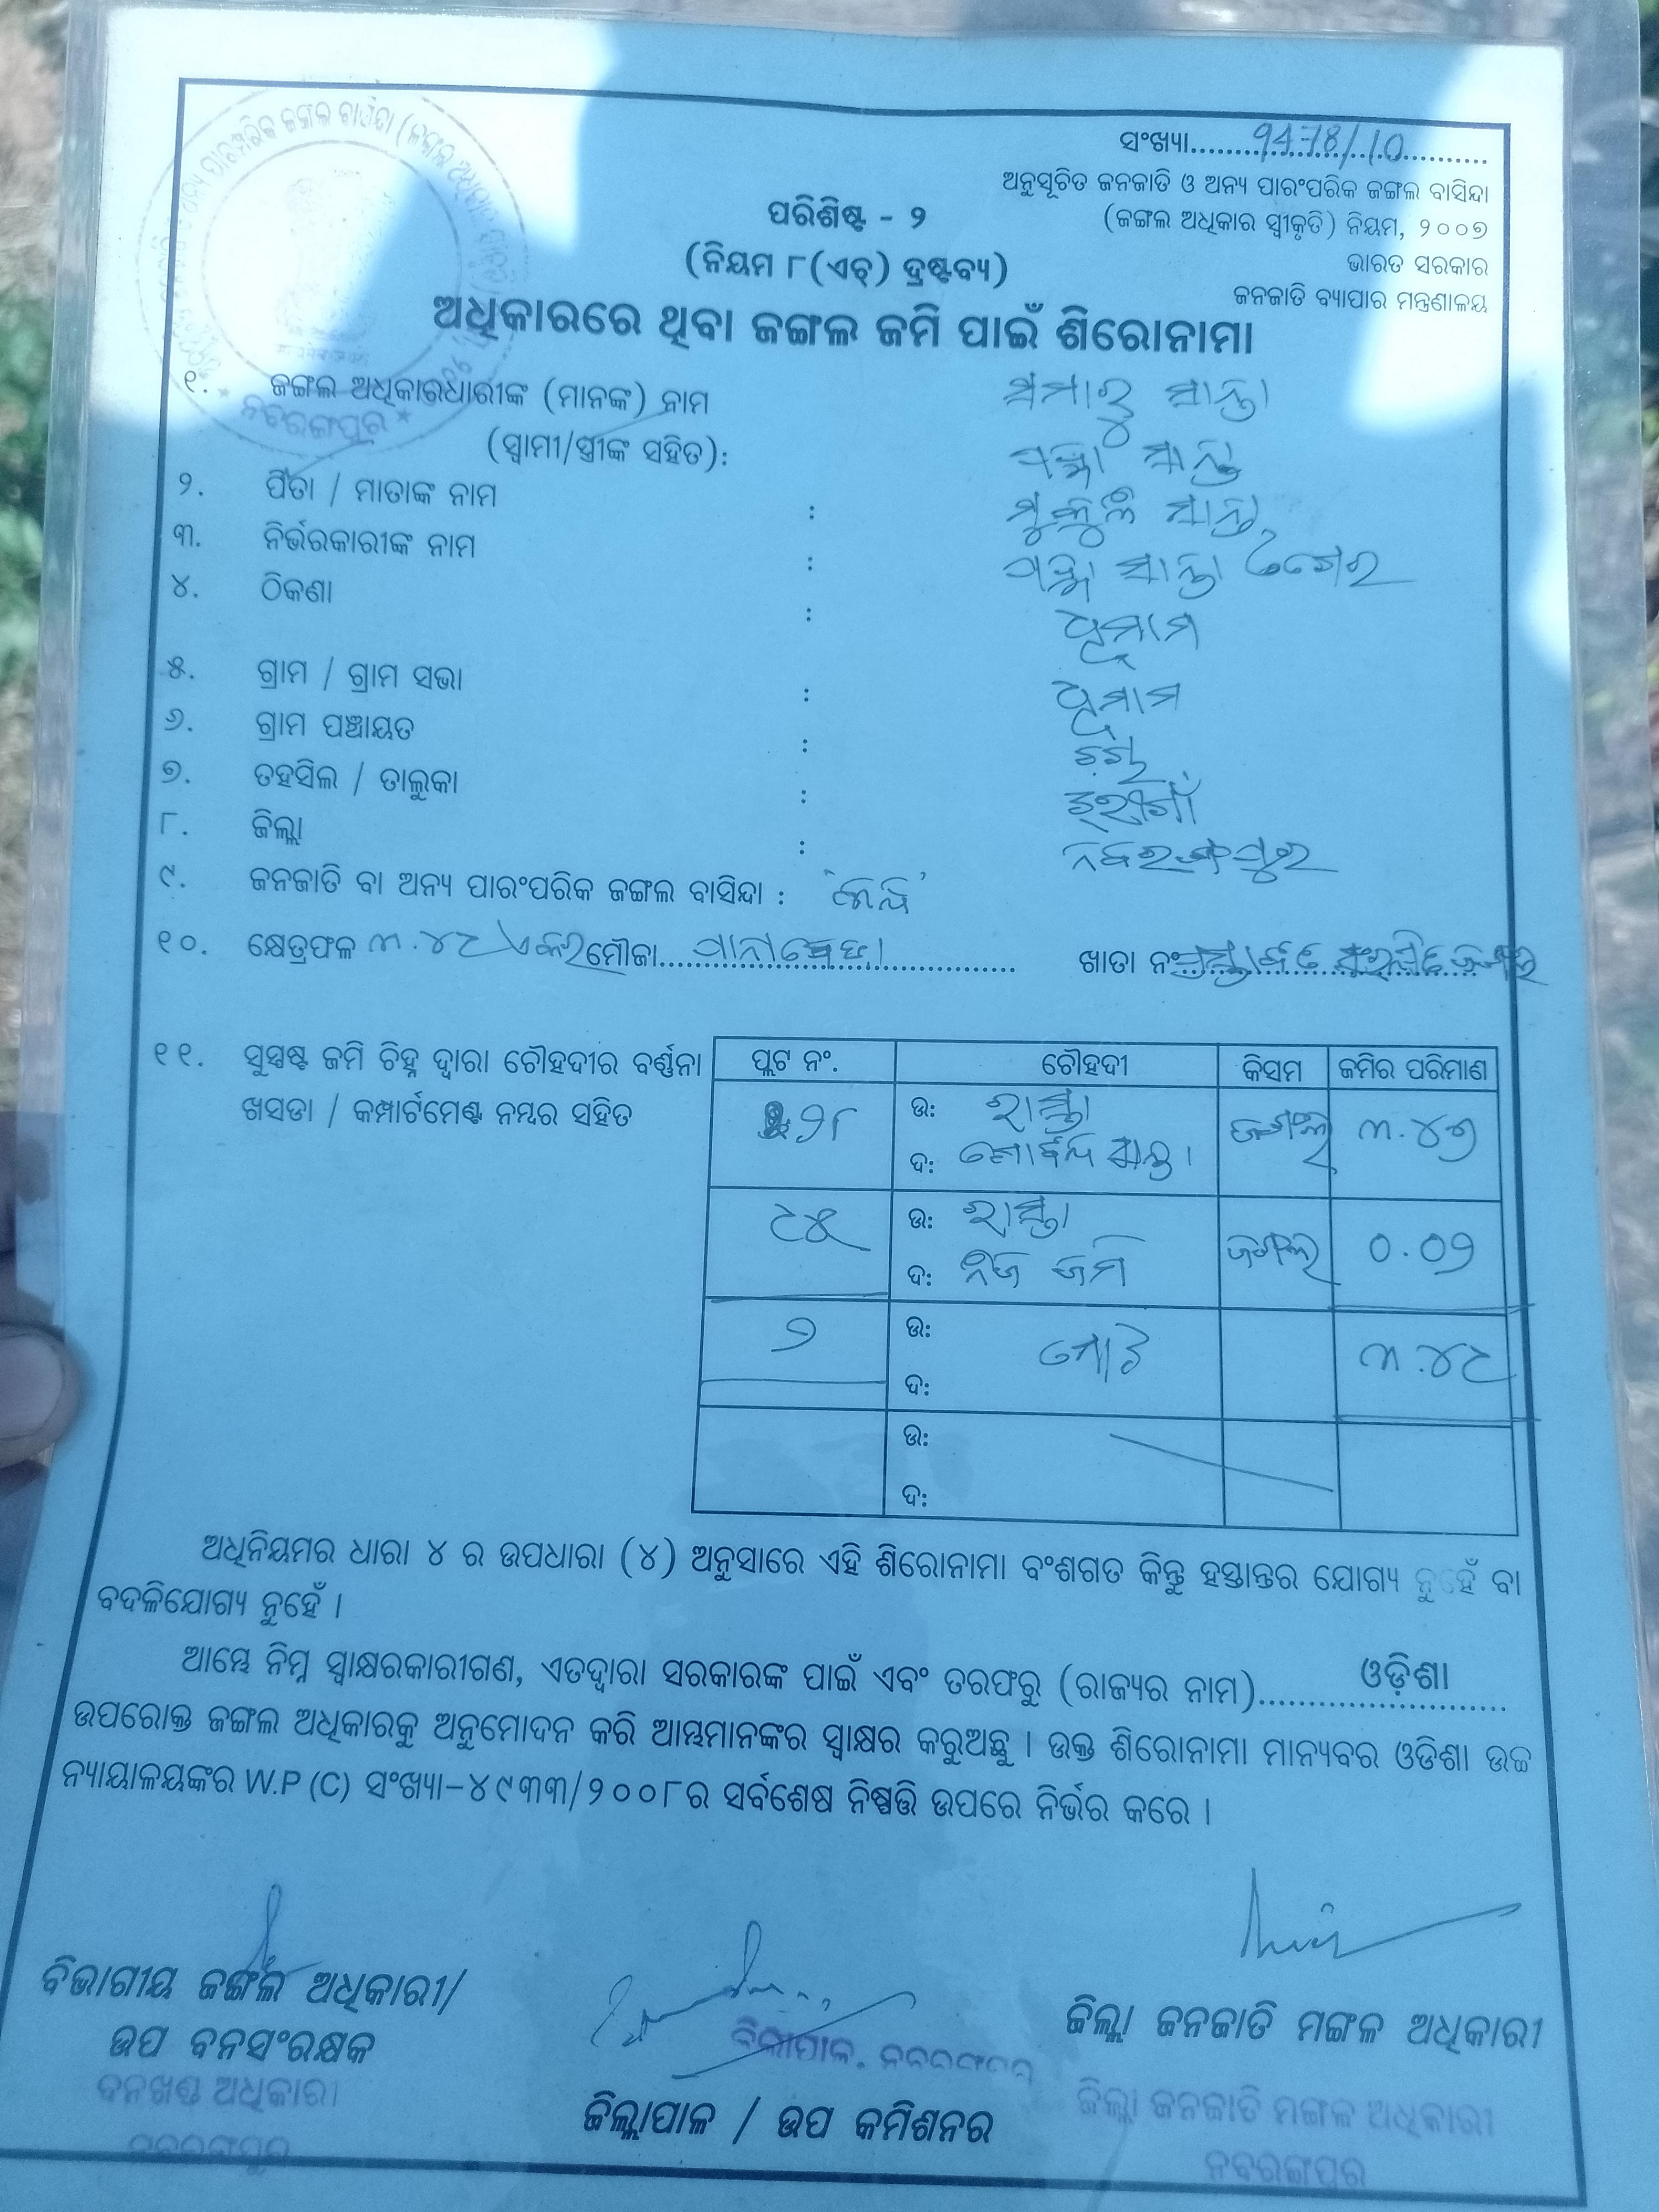 ସଂଖ୍ୟା.......9478/10..........
ଅନୁସୂଚିତ ଜନଜାତି ଓ ଅନ୍ୟ ପାରଂପରିକ ଜଙ୍ଗଲ ବାସିନ୍ଦା
(ଜଙ୍ଗଲ ଅଧିକାର ସ୍ୱୀକୃତି) ନିୟମ, ୨୦୦୭
ଭାରତ ସରକାର
ଜନଜାତି ବ୍ୟାପାର ମନ୍ତ୍ରଣାଳୟ
ପରିଶିଷ୍ଟ - ୨
(ନିୟମ ୮(ଏଚ୍) ଦ୍ରଷ୍ଟବ୍ୟ)
ଅଧିକାରରେ ଥିବା ଜଙ୍ଗଲ ଜମି ପାଇଁ ଶିରୋନାମା
୧. ଜଙ୍ଗଲ ଅଧିକାରଧାରୀଙ୍କ (ମାନଙ୍କ) ନାମ ସମାରୁ ସାନ୍ତା
(ସ୍ୱାମୀ/ସ୍ତ୍ରୀଙ୍କ ସହିତ): ସାନ୍ତା
୨. ପିତା / ମାତାଙ୍କ ନାମ : ସାନ୍ତା
୩. ନିର୍ଭରକାରୀଙ୍କ ନାମ : ସାନ୍ତା
୪. ଠିକଣା :
୫. ଗ୍ରାମ / ଗ୍ରାମ ସଭା :
୬. ଗ୍ରାମ ପଞ୍ଚାୟତ :
୭. ତହସିଲ / ତାଲୁକା : ଝରୀଗାଁ
୮. ଜିଲ୍ଲା : ନବରଙ୍ଗପୁର
୯. ଜନଜାତି ବା ଅନ୍ୟ ପାରଂପରିକ ଜଙ୍ଗଲ ବାସିନ୍ଦା :
୧୦. କ୍ଷେତ୍ରଫଳ ୩.୪୯ ଏକର ମୌଜା.......... ଖାତା ନଂ
୧୧. ସୁସ୍ପଷ୍ଟ ଜମି ଚିହ୍ନ ଦ୍ୱାରା ଚୌହଦୀର ବର୍ଣ୍ଣନା
ଖସଡା / କମ୍ପାର୍ଟମେଣ୍ଟ ନମ୍ବର ସହିତ
ପ୍ଲଟ ନଂ. ଚୌହଦୀ କିସମ ଜମିର ପରିମାଣ
ଉ: ରାସ୍ତା ଜଙ୍ଗଲ ୩.୪୭
ଦ: ଗୋବିନ୍ଦ ସାନ୍ତା
୯୫ ଉ: ରାସ୍ତା ଜଙ୍ଗଲ ୦.୦୨
ଦ: ନିଜ ଜମି
୨ ଉ: ମୋଟ ୩.୪୯
ଦ:
ଉ:
ଦ:
ଅଧିନିୟମର ଧାରା ୪ ର ଉପଧାରା (୪) ଅନୁସାରେ ଏହି ଶିରୋନାମା ବଂଶଗତ କିନ୍ତୁ ହସ୍ତାନ୍ତର ଯୋଗ୍ୟ ନୁହେଁ ବା
ବଦଳିଯୋଗ୍ୟ ନୁହେଁ ।
ଆମ୍ଭେ ନିମ୍ନ ସ୍ୱାକ୍ଷରକାରୀଗଣ, ଏତଦ୍ୱାରା ସରକାରଙ୍କ ପାଇଁ ଏବଂ ତରଫରୁ (ରାଜ୍ୟର ନାମ)......ଓଡ଼ିଶା......
ଉପରୋକ୍ତ ଜଙ୍ଗଲ ଅଧିକାରକୁ ଅନୁମୋଦନ କରି ଆମ୍ଭମାନଙ୍କର ସ୍ୱାକ୍ଷର କରୁଅଛୁ । ଉକ୍ତ ଶିରୋନାମା ମାନ୍ୟବର ଓଡିଶା ଉଚ୍ଚ
ନ୍ୟାୟାଳୟଙ୍କର W.P (C) ସଂଖ୍ୟା-୪୯୩୩/୨୦୦୮ର ସର୍ବଶେଷ ନିଷ୍ପତ୍ତି ଉପରେ ନିର୍ଭର କରେ ।
ବିଭାଗୀୟ ଜଙ୍ଗଲ ଅଧିକାରୀ/
ଉପ ବନସଂରକ୍ଷକ
ବନଖଣ୍ଡ ଅଧିକାରୀ
ନବରଙ୍ଗପୁର
ଜିଲ୍ଲାପାଳ, ନବରଙ୍ଗପୁର
ଜିଲ୍ଲାପାଳ / ଉପ କମିଶନର
ଜିଲ୍ଲା ଜନଜାତି ମଙ୍ଗଳ ଅଧିକାରୀ
ଜିଲ୍ଲା ଜନଜାତି ମଙ୍ଗଳ ଅଧିକାରୀ
ନବରଙ୍ଗପୁର